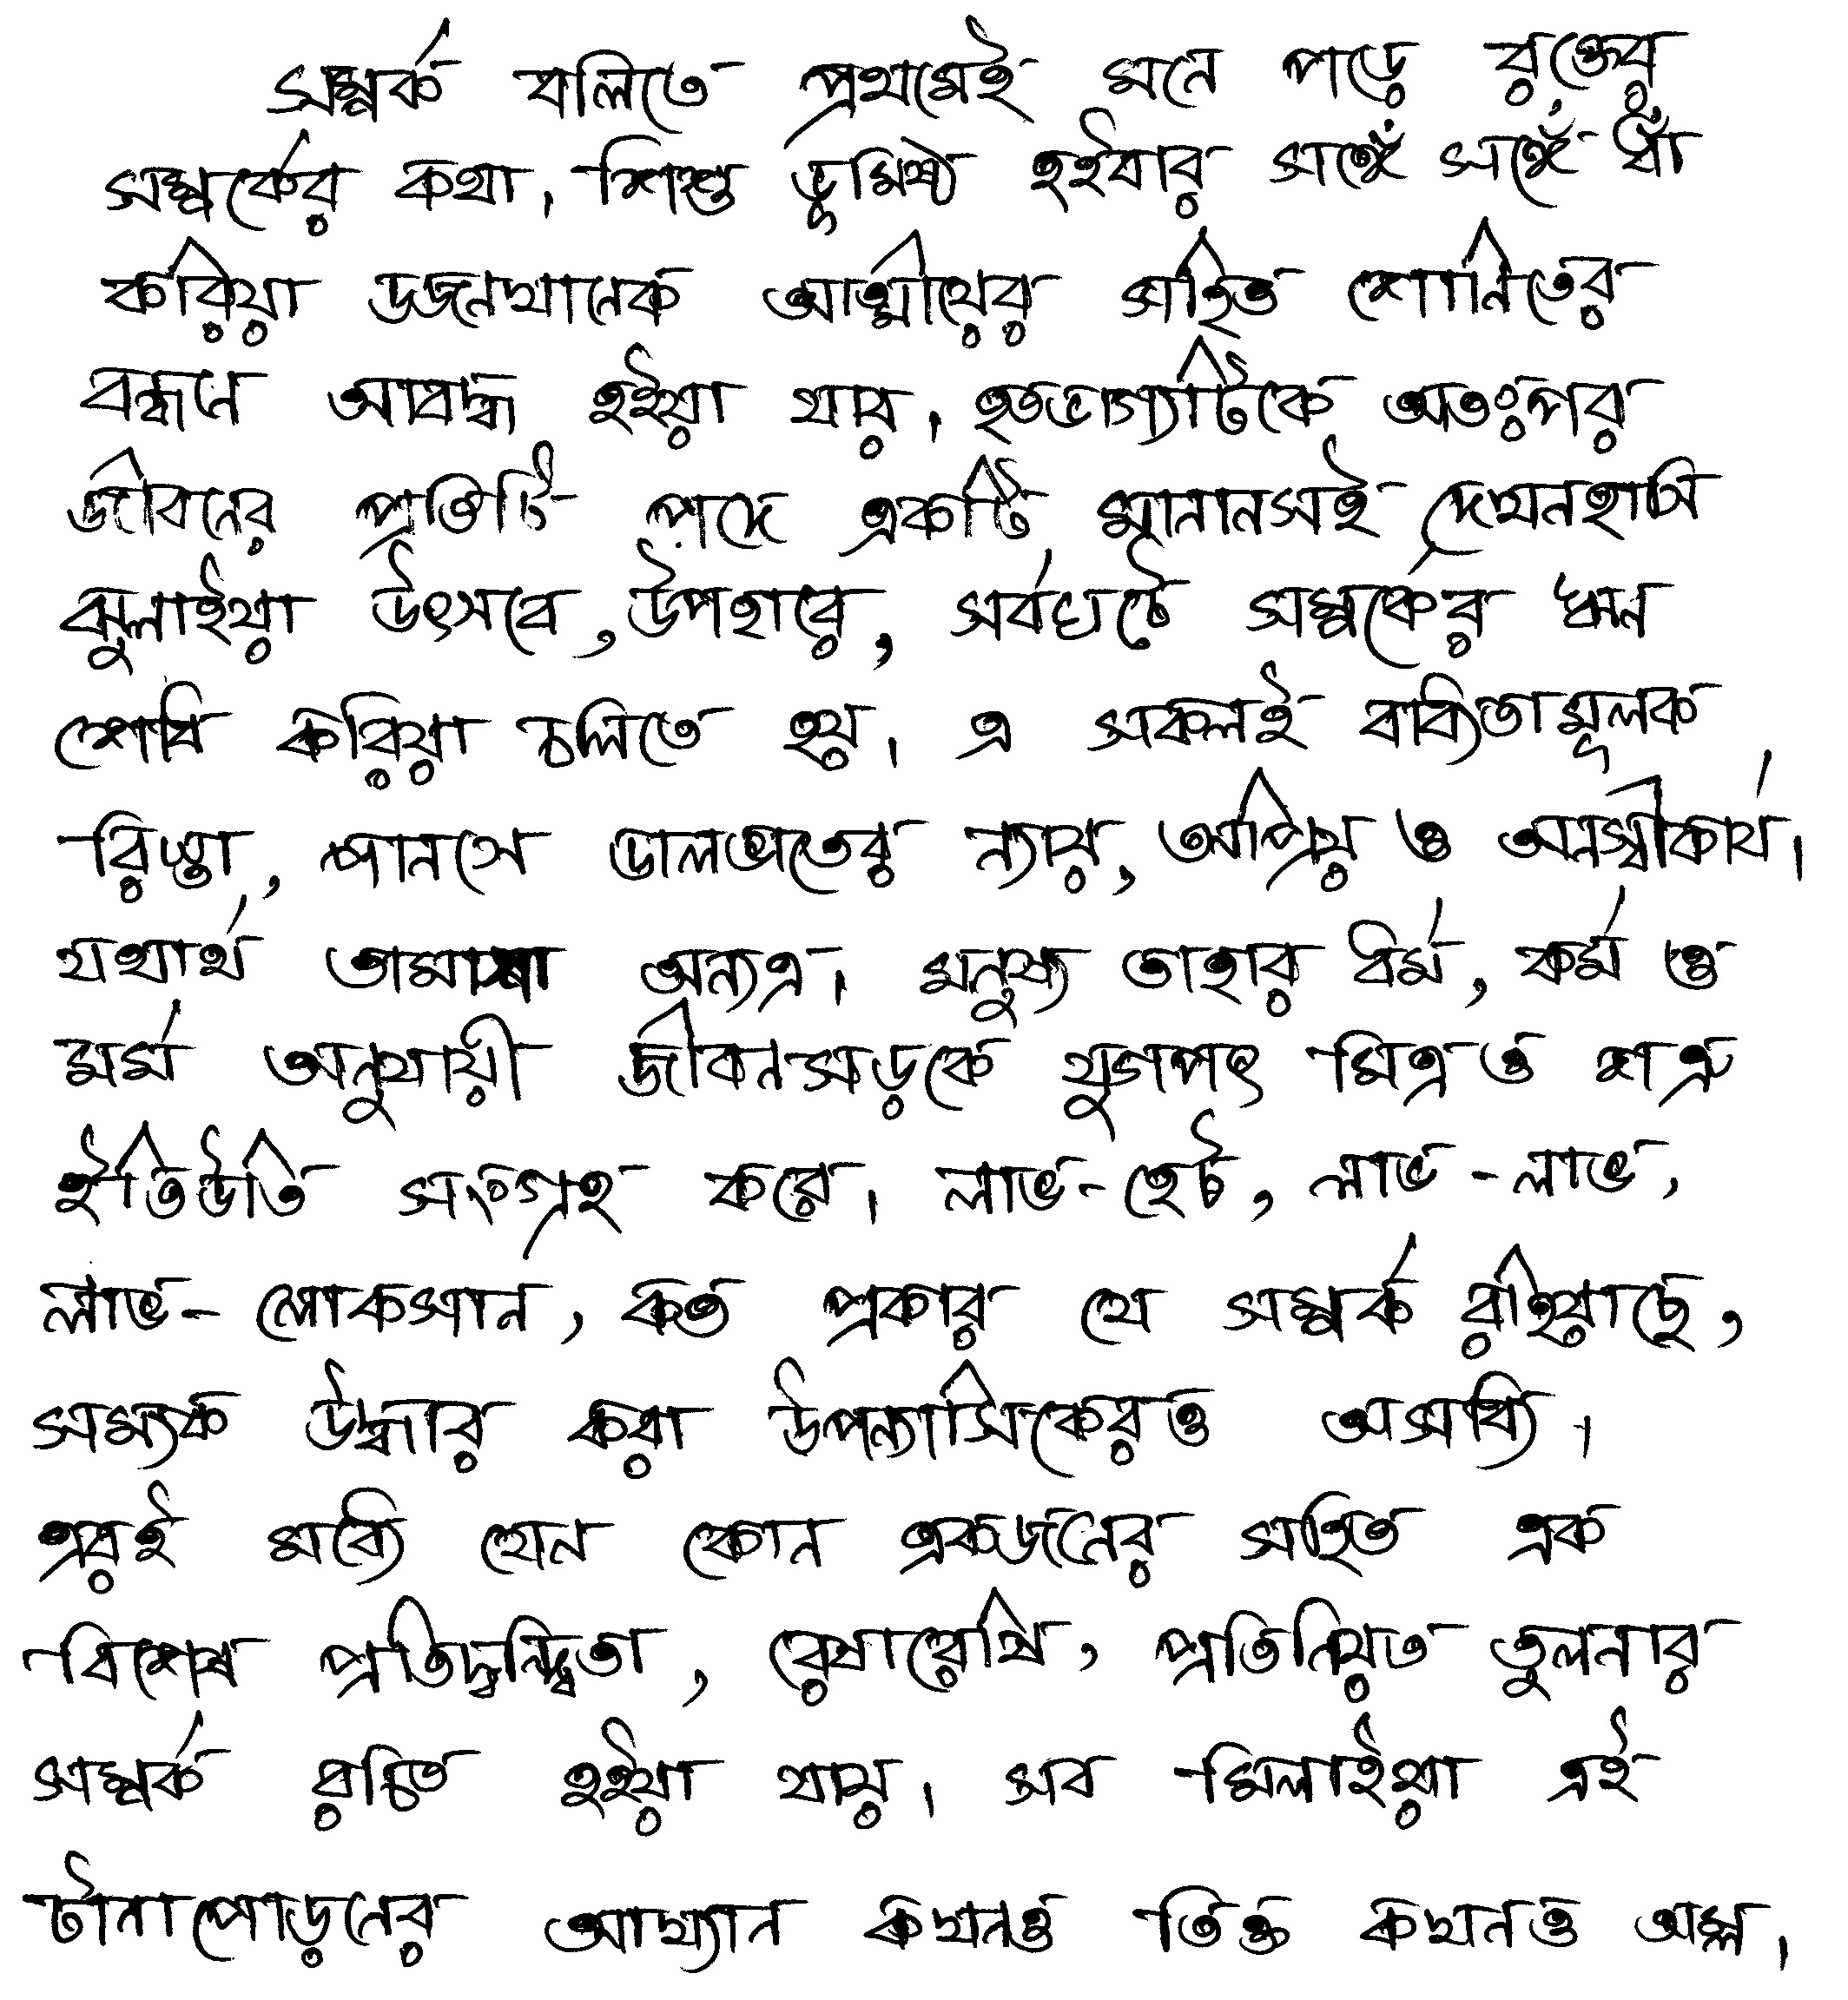 সম্পর্ক বলিতে প্রথমেই মনে পড়ে রক্তের
সম্পর্কের কথা। শিশু ভূমিষ্ঠ হইবার সঙ্গেঁ সঙ্গেঁ ধাঁ
করিয়া ডজনখানেক আত্মীয়ের সহিত শোনিতের
বন্ধনে আবদ্ধ হইয়া যায়। হতভাগ্যটিকে অতঃপর
জীবনের প্রতিটি পদে একটি মানানসই দেখনহাসি
ঝুলাইয়া উৎসবে, উপহারে, সর্বঘটে সম্পর্কের ঋন
শোধ করিয়া চলিতে হয়। এ সকলই বাধ্যতামূলক
রিস্তা, পানসে ডালভাতের ন্যায়, অপ্রিয় ও অনস্বীকার্য।
যথার্থ তামাশা অন্যত্র। মনুষ্য তাহার ধর্ম, কর্ম ও
মর্ম অনুযায়ী জীবনসড়কে যুগপৎ মিত্র ও শত্রু
ইতিউতি সংগ্রহ করে। লাভ-হেট, লাভ-লাভ,
লাভ-লোকসান, কত প্রকার যে সম্পর্ক রহিয়াছে,
সম্যক উদ্ধার করা উপন্যাসিকেরও অসাধ্য।
এরই মধ্যে যেন কোন একজনের সহিত এক
বিশেষ প্রতিদ্বন্দ্বিতা, রেষারেষি, প্রতিনিয়ত তুলনার
সম্পর্ক রচিত হইয়া যায়। সব মিলাইয়া এই
টানাপোড়নের আখ্যান কখনও তিক্ত কখনও অম্ল।